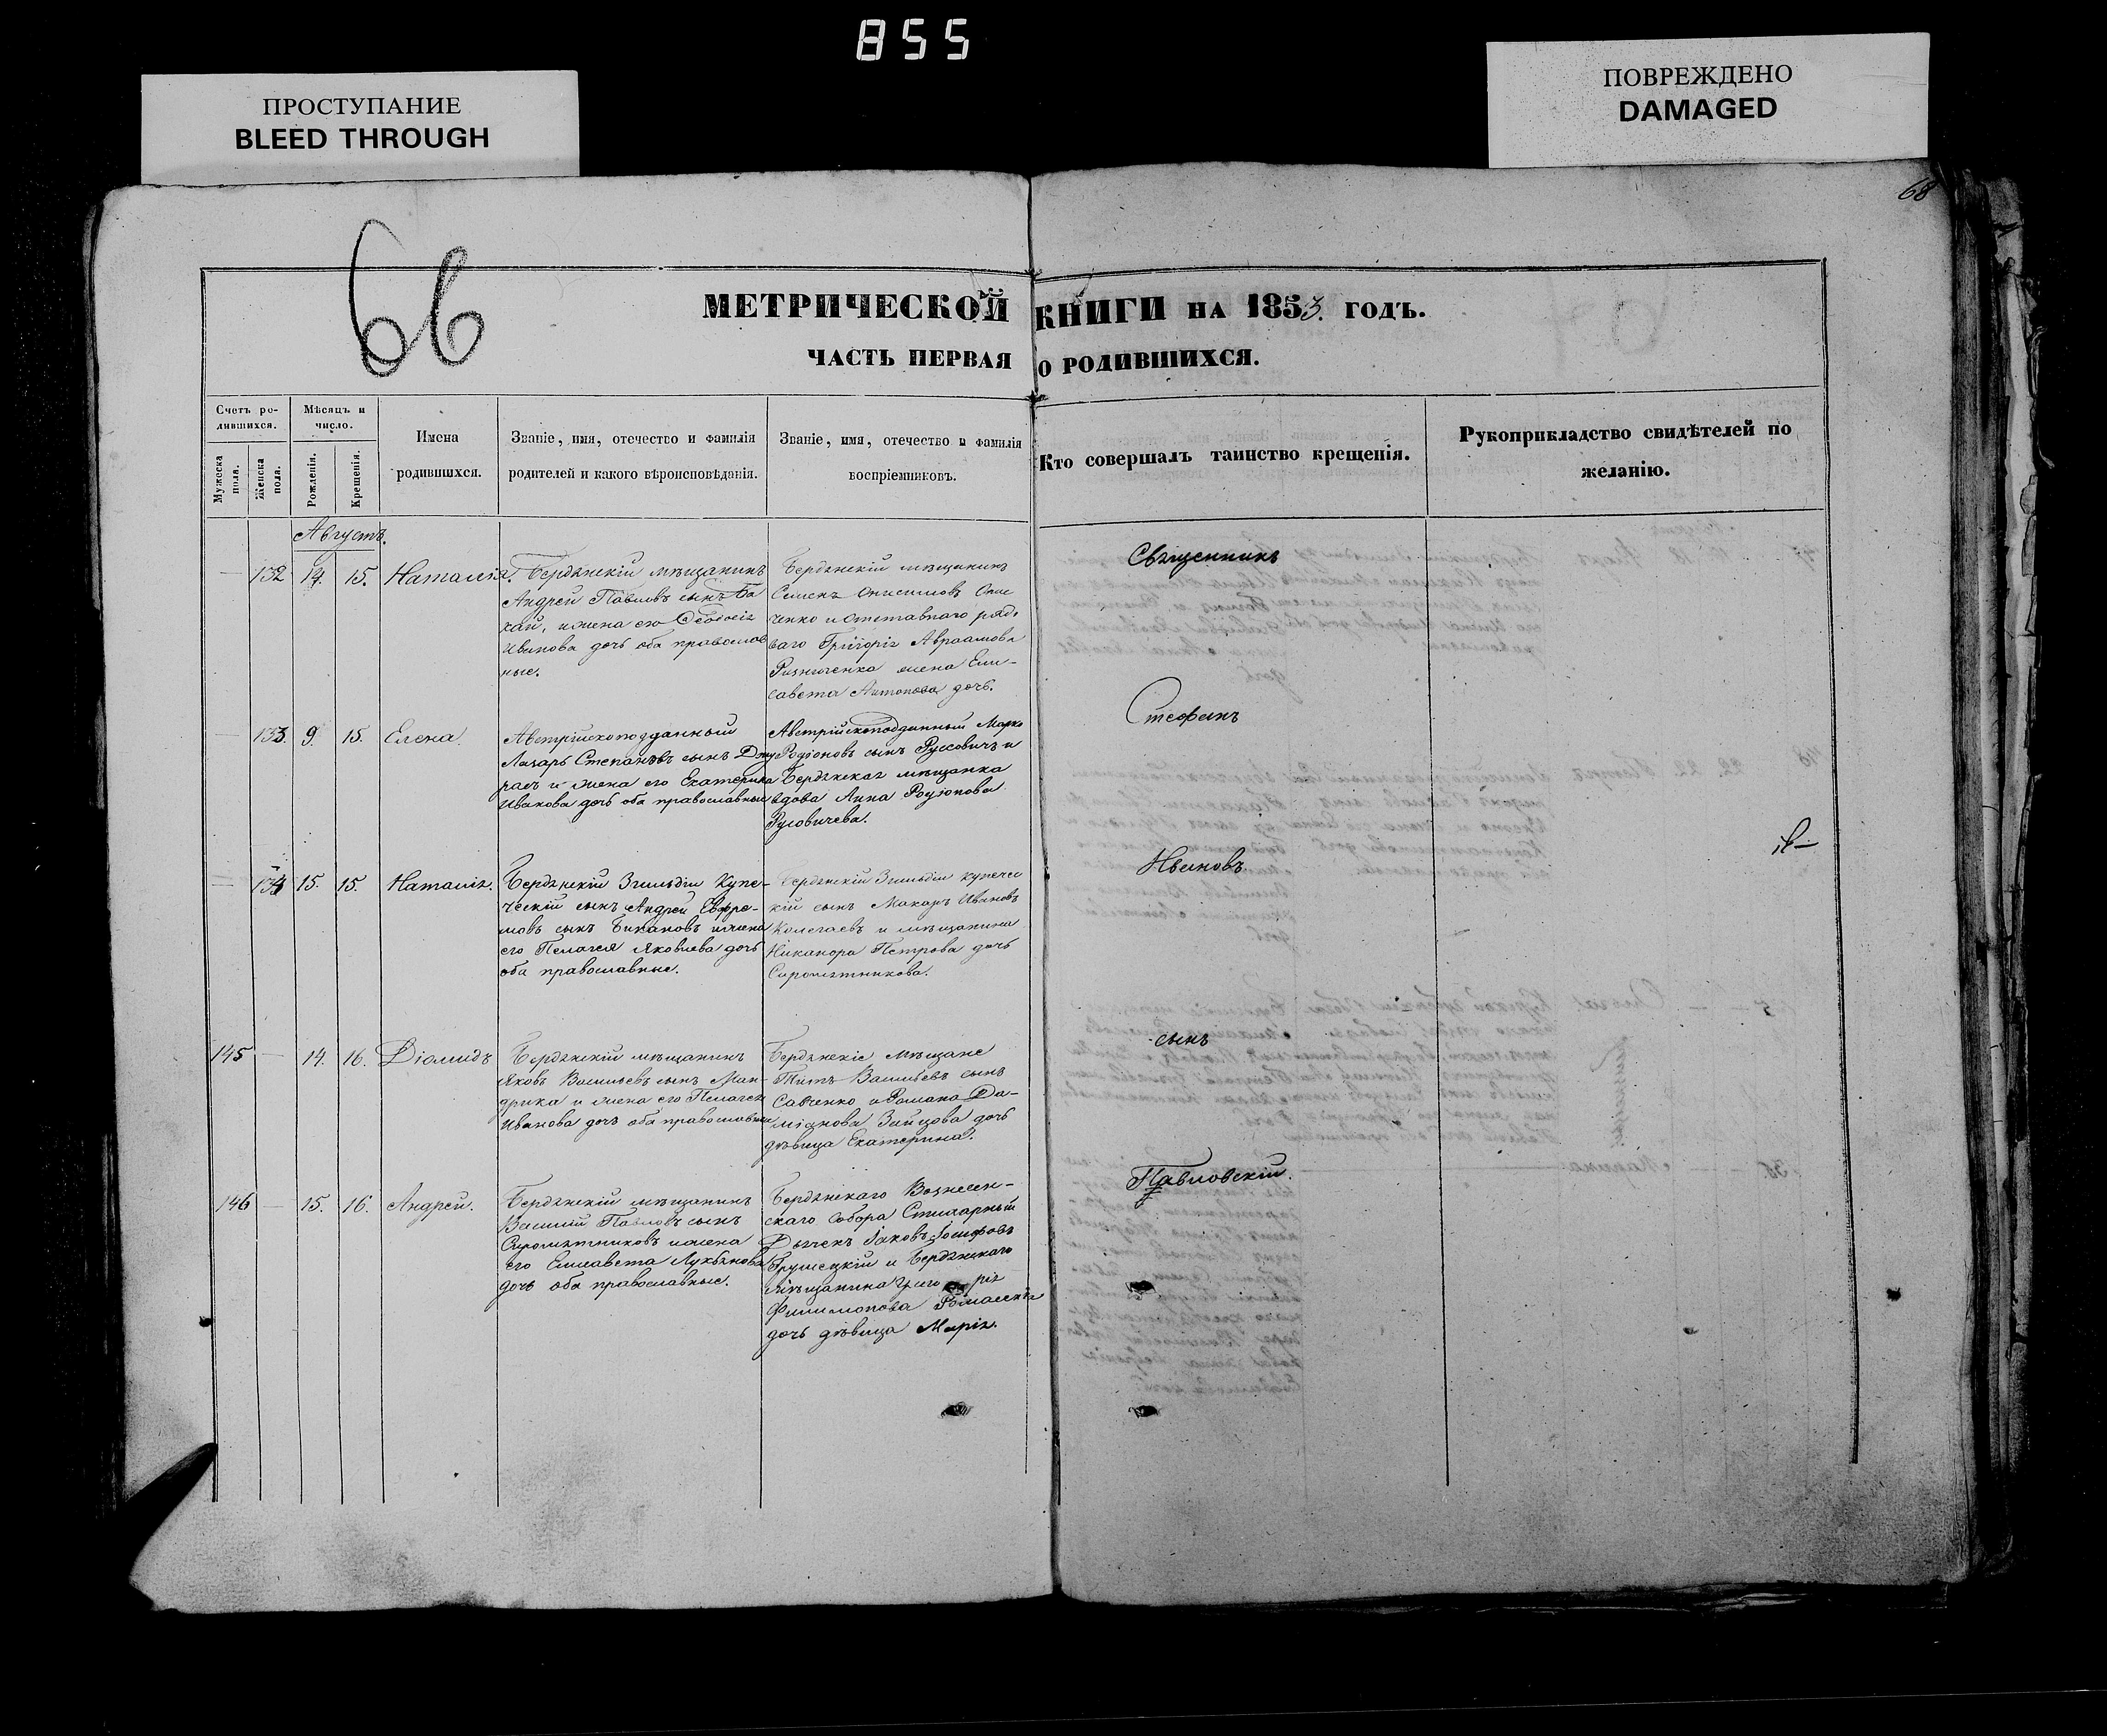 855
ПРОСТУПАНИЕ
BLEED THROUGH
ПОВРЕЖДЕНО
DAMAGED
68
66
МЕТРИЧЕСКОЙ КНИГИ НА 1853. ГОДЪ.
ЧАСТЬ ПЕРВАЯ О РОДИВШИХСЯ.
Счетъ ро-
дившихся.
Мужеска
пола.
Женска
пола.
Мѣсяцъ и
число.
Рожденія.
Крещенія.
Имена
родившихся.
Званіе, имя, отечество и фамилія
родителей и какого вѣроисповѣданія.
Званіе, имя, отечество и фамилія
воспріемниковъ.
Кто совершалъ таинство крещенія.
Рукоприкладство свидѣтелей по
желанію.
Августъ.
132 14. 15. Наталія.
Бердянскій мѣщанинъ
Андрей Павловъ сынъ Ба
кай, и жена его Ѳеодосія
Иванова дочь оба православ
ные.
Бердянскій мѣщанинъ
Семенъ Онисимовъ Опие
ченко и отставнаго рядо
ваго Григорія Авраамова
жена Ели-
савета Антонова дочь.
Священникъ
133. 9. 15. Елена.
Австрійскоподданный
Лазарь Степановъ сынъ Джу
расъ и жена его Екатерина
Иванова дочь оба православные
Австрійскоподданный Марко
Родіоновъ сынъ Руссовичъ и
Бердянская мѣщанка
вдова Анна Родіонова
Русовичева.
Стефанъ
134 15. 15. Наталія.
Бердянскій 3 гильдіи Купе-
ческій сынъ Андрей Евфре-
мовъ сынъ Бикановъ и жена
его Пелагея Яковлева дочь
оба православные.
Бердянскій 3 гильдіи купечес
кій сынъ Макаръ Ивановъ
Колегаевъ и мѣщанина
Никанора Петрова дочь
Сыромятникова.
Ивановъ
145 14. 16. Діомидъ
Бердянскій мѣщанинъ
Яковъ Васильевъ сынъ Ман-
дрика и жена его Пелагея
Иванова дочь оба православные
Бердянскіе мѣщане
Титъ Васильевъ сынъ
Савченко и Романа Да-
міанова Зайцова дочь
дѣвица Екатерина.
сынъ
146 15. 16. Андрей.
Бердянскій мѣщанинъ
Василій Павловъ сынъ
Сыромятниковъ и жена
его Елисавета Лукьянова
дочь оба православные.
Бердянскаго Вознесен-
скаго Собора Стихарный
Дьячекъ Іаковъ Іосифовъ
Грушецкій и Бердянскаго
мѣщанина Григорія
Филимонова Романенка
дочь дѣвица Марія.
Павловскій.